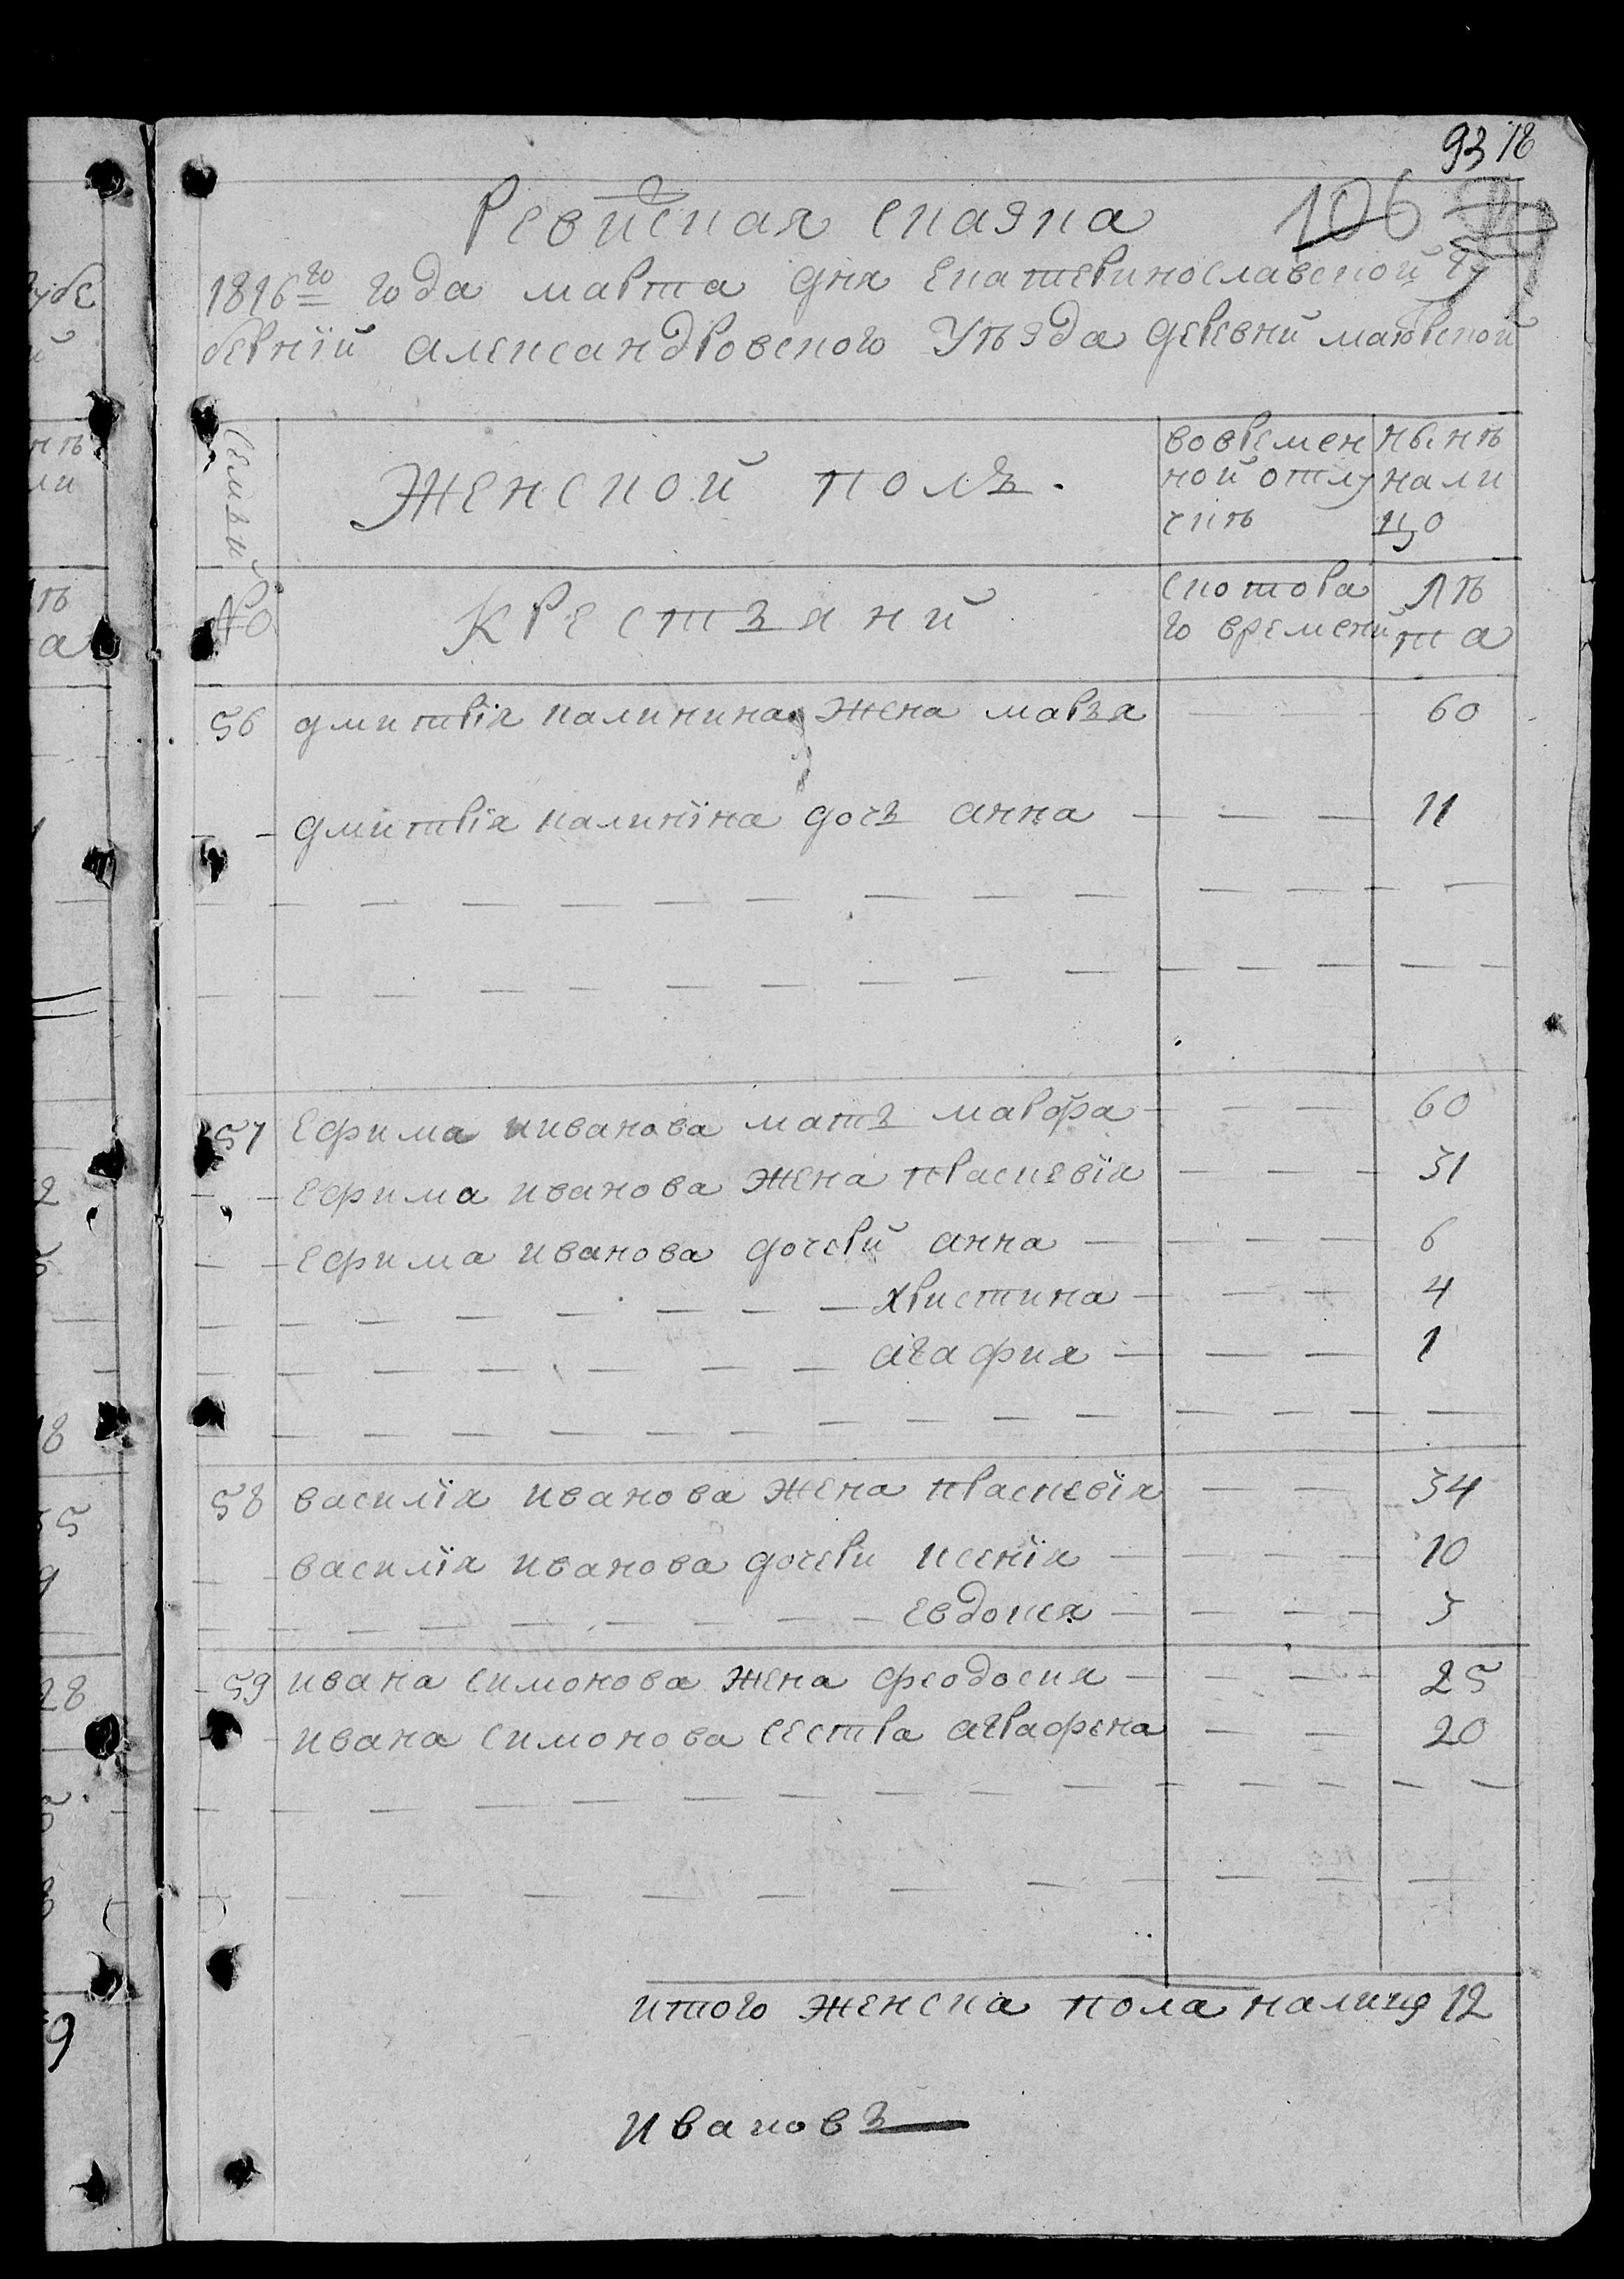 93 18
Ревиская сказка 106
1816го года марта дня екатеринославской гу
бернїй александровского уѣзда деревни маюрской
Семьи
женской полъ.
вовремен
ной отлу
чик
нынѣ
нали
цо
№
крестьяни
скотора
го времени
лѣ
та
56 дмитрїя калинина жена марья — — — 60
— — дмитрїя калинїна дочь анна — — — — 11
57 ефима ииванова мать марфа — — — 60
— — ефима иванова жена прасковїя — — — 31
— — ефима иванова дочерй анна — — — — 6
— — — — — — — — христина — — — 4
— — — — — — — агафия — — — 1
58 василїя иванова жена прасковїя — — 34
— — василїя иванова дочери ксенїя — — — — 10
— — — — — — — — — евдокия — — — — 3
— 59 ивана симонова жена феодосия — — — — 25
— — ивана симонова сестра аграфена — — 20
итого женска пола налицо 12
ивановъ